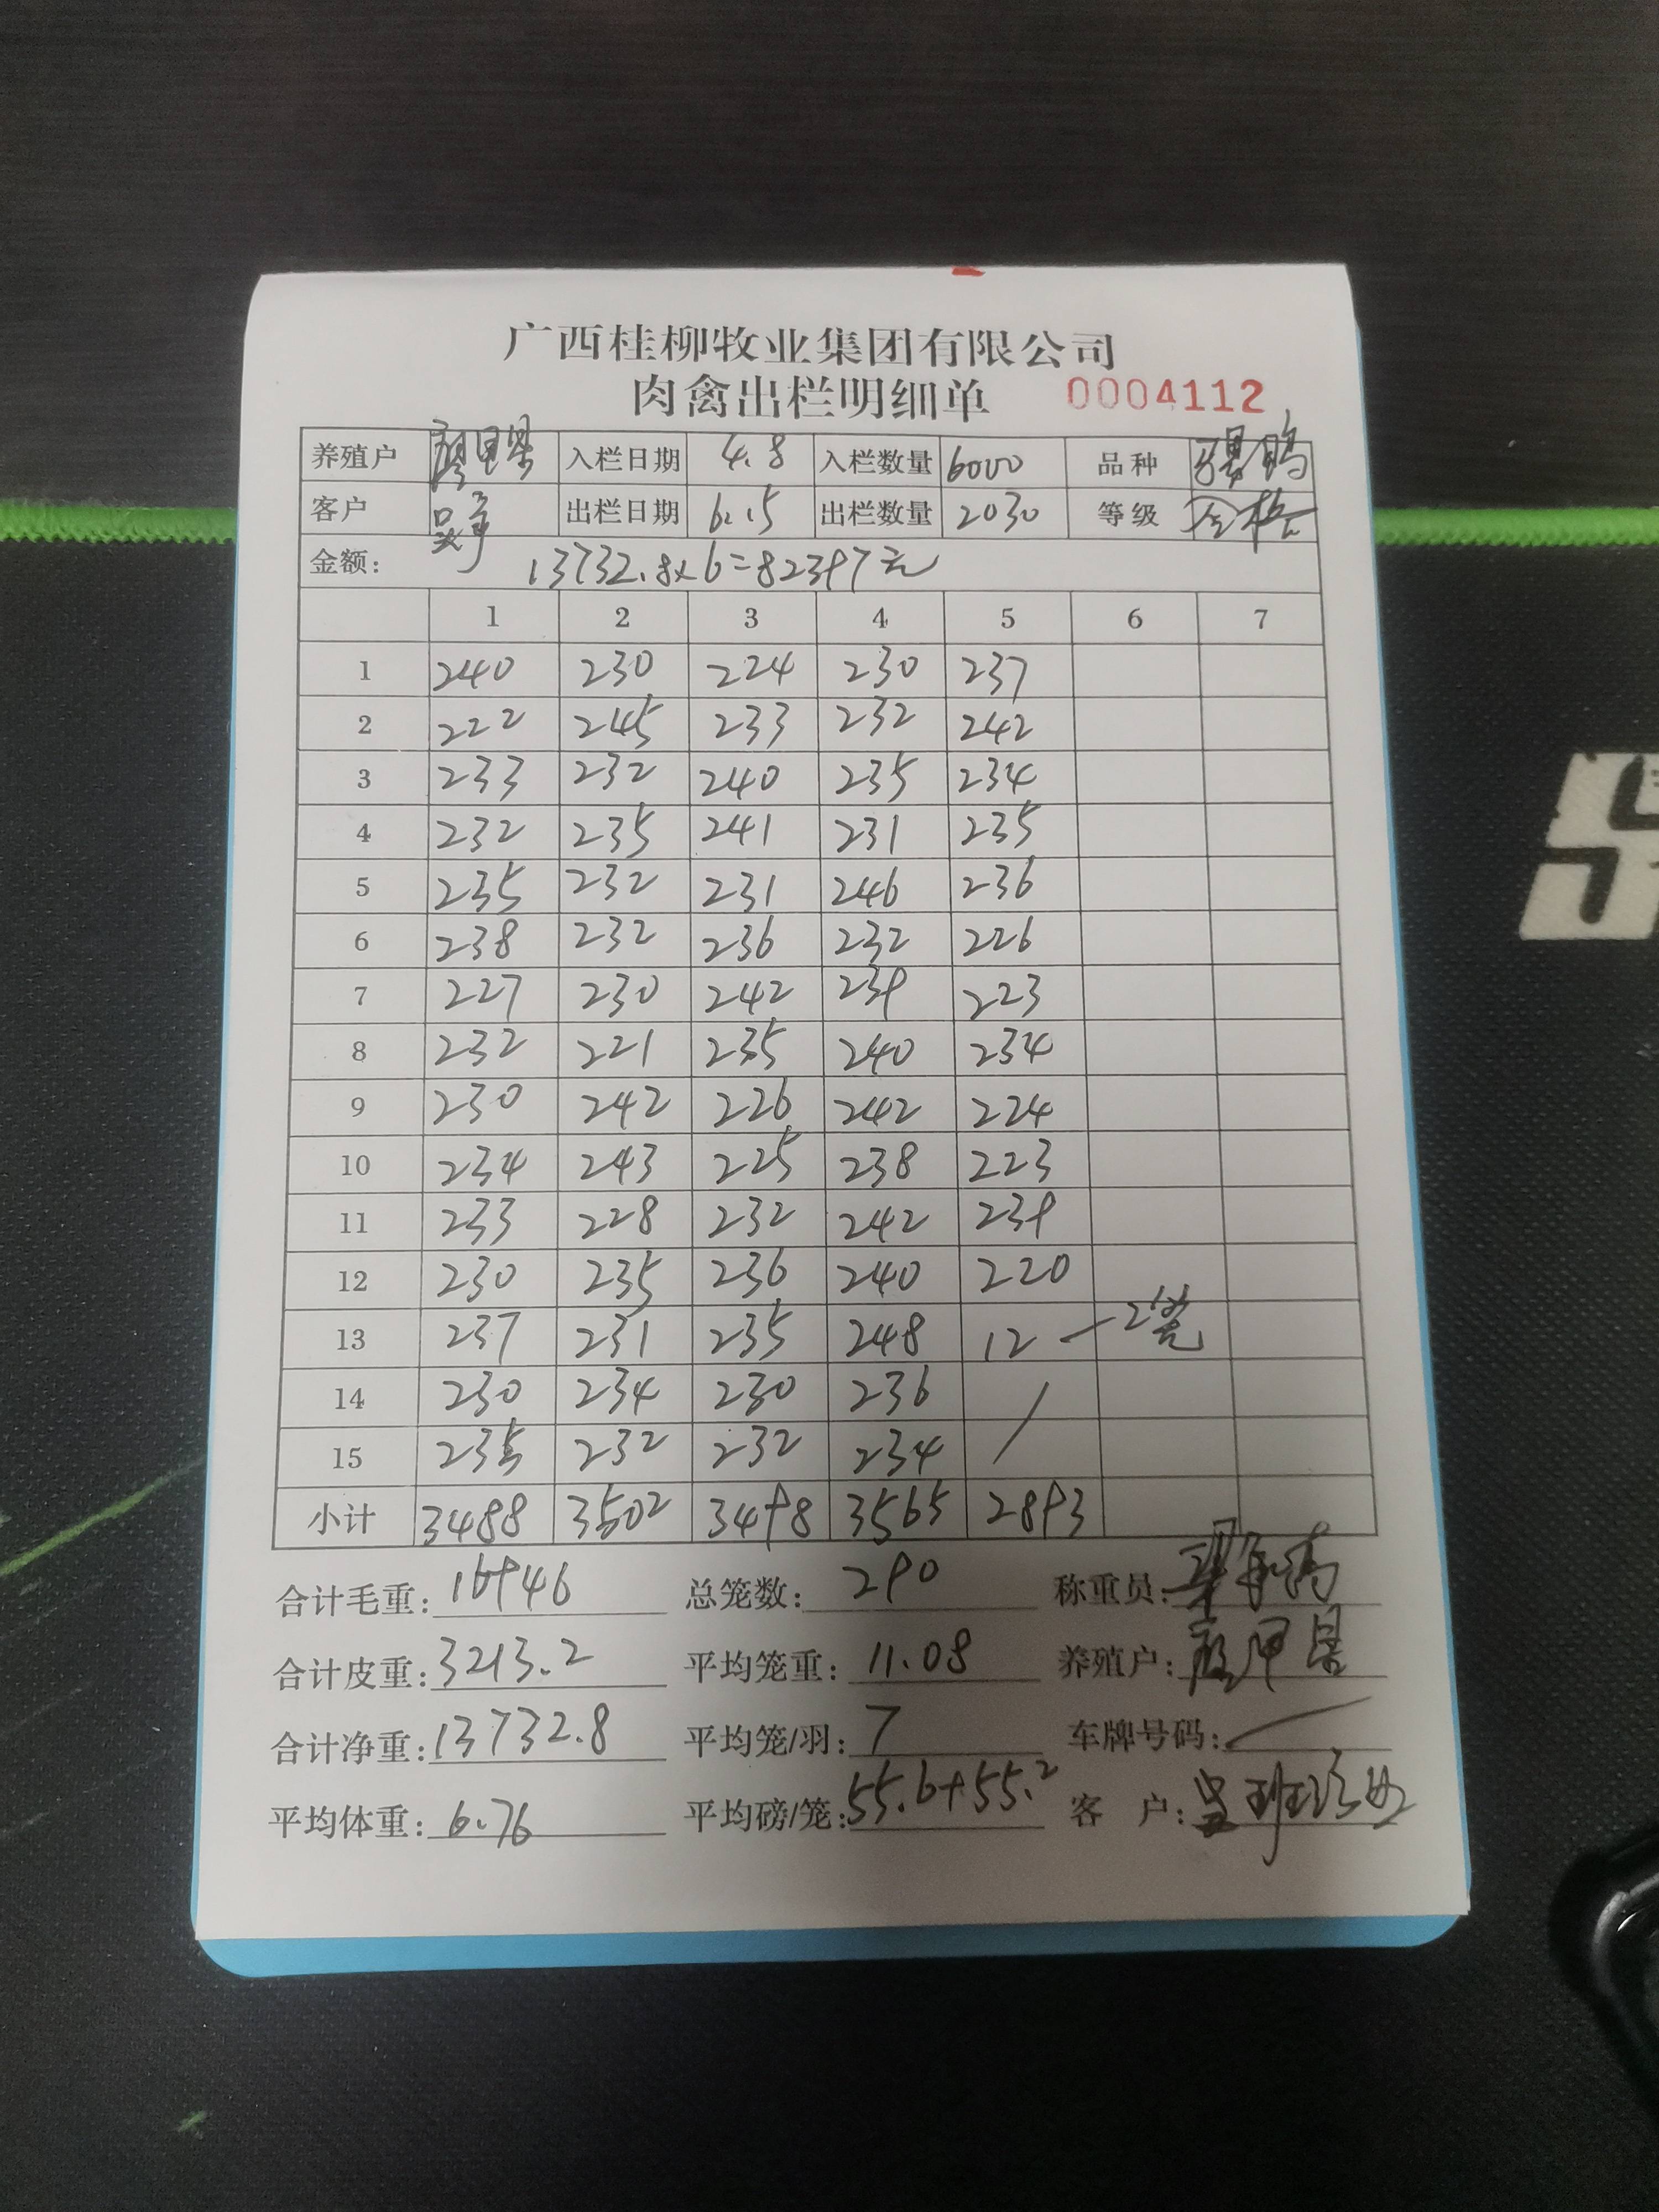 广西桂柳牧业集团有限公司
肉禽出栏明细单 0004112
养殖户 入栏日期 4.8 入栏数量 6000 品种
客户 出栏日期 6.15 出栏数量 2030 等级 合格
金额: 13732.8x6=82397元
1 2 3 4 5 6 7
1 240 230 224 230 237
2 222 245 233 232 242
3 233 232 240 235 234
4 232 235 241 231 235
5 235 232 231 246 236
6 238 232 236 232 226
7 227 230 242 239 223
8 232 221 235 240 234
9 230 242 226 242 224
10 234 243 225 238 223
11 233 228 232 242 239
12 230 235 236 240 220
13 237 231 235 248 12 — 2笼
14 230 234 230 236 /
15 235 232 232 234
小计 3488 3502 3498 3565 2893
合计毛重: 16946 总笼数: 290 称重员:
合计皮重: 3213.2 平均笼重: 11.08 养殖户:
合计净重: 13732.8 平均笼/羽: 7 车牌号码: /
平均体重: 6.76 平均磅/笼: 55.6+55.2 客 户: